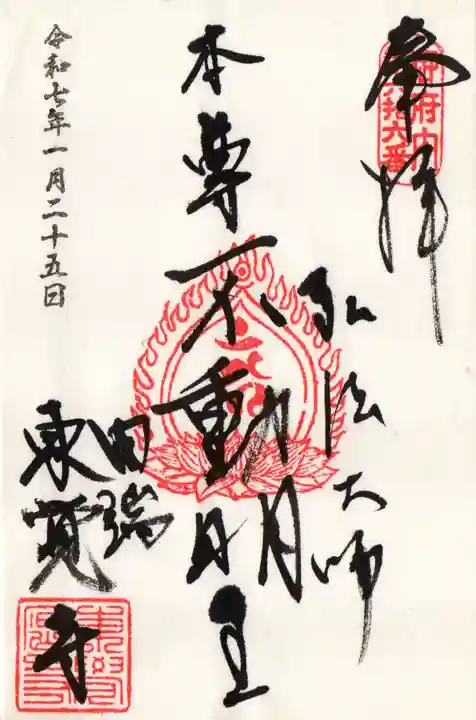 奉拝
御府内
六拾六番
弘法大師
本尊不動明王
田端
東覺寺
令和七年一月二十五日